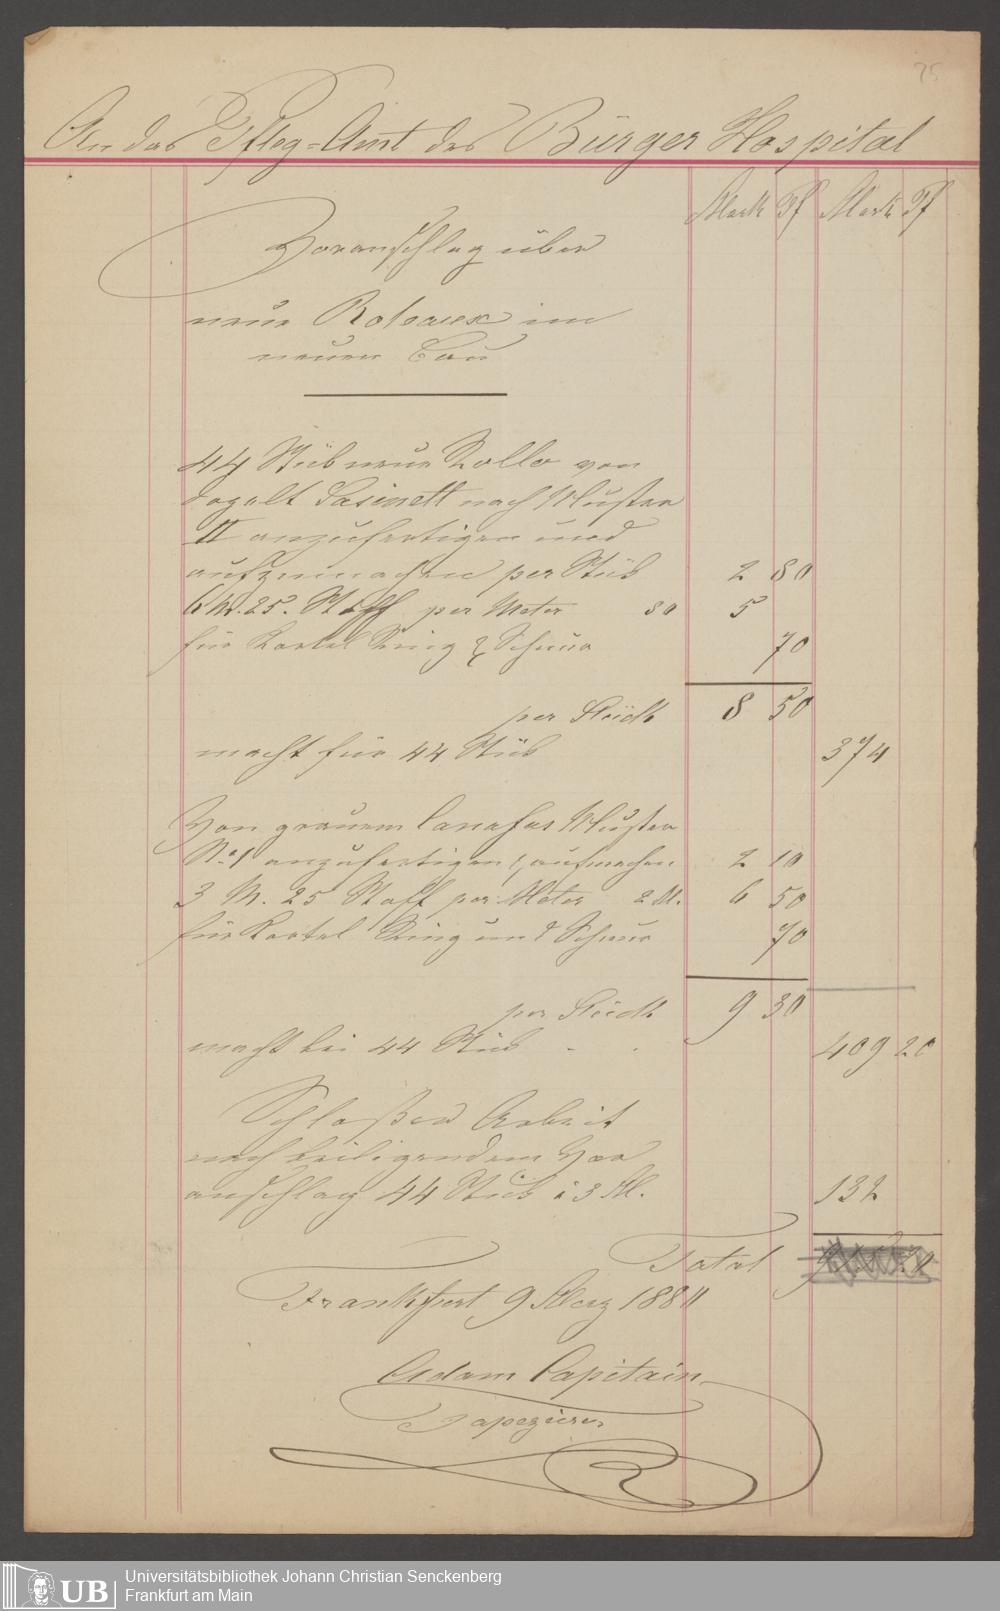 75
An das Pfleg-Amt des Bürger Hospital
Mark Pf Mark Pf
Voranschlag über
neue Roleaux im
neuen Bau
44 Stük neue Rollo von
Sasinett nach Muster
II anzufertigen und
aufzumachen per Stük 2 80
6 M. 25. Stoff per Meter 80 5
für Kortel Ring & Schnur 70
per Stück 8 50
macht für 44 Stük 374
Von grauem Canafas Muster
No. 1 anzufertigen, aufmachen 2 10
3 M. 25 Stoff per Meter 2 M. 6 50
für Kortel Ring und Schnur 70
per Stück 9 30
macht bei 44 Stük - . 409 20
Schloßer Arbeit
nach beiligendem Vor
anschlag 44 Stük à 3 M. 132
Total
Frankfurt 9 Merz 188
Adam Capitain
Tapezierer
UB Universitätsbibliothek Johann Christian Senckenberg
Frankfurt am Main